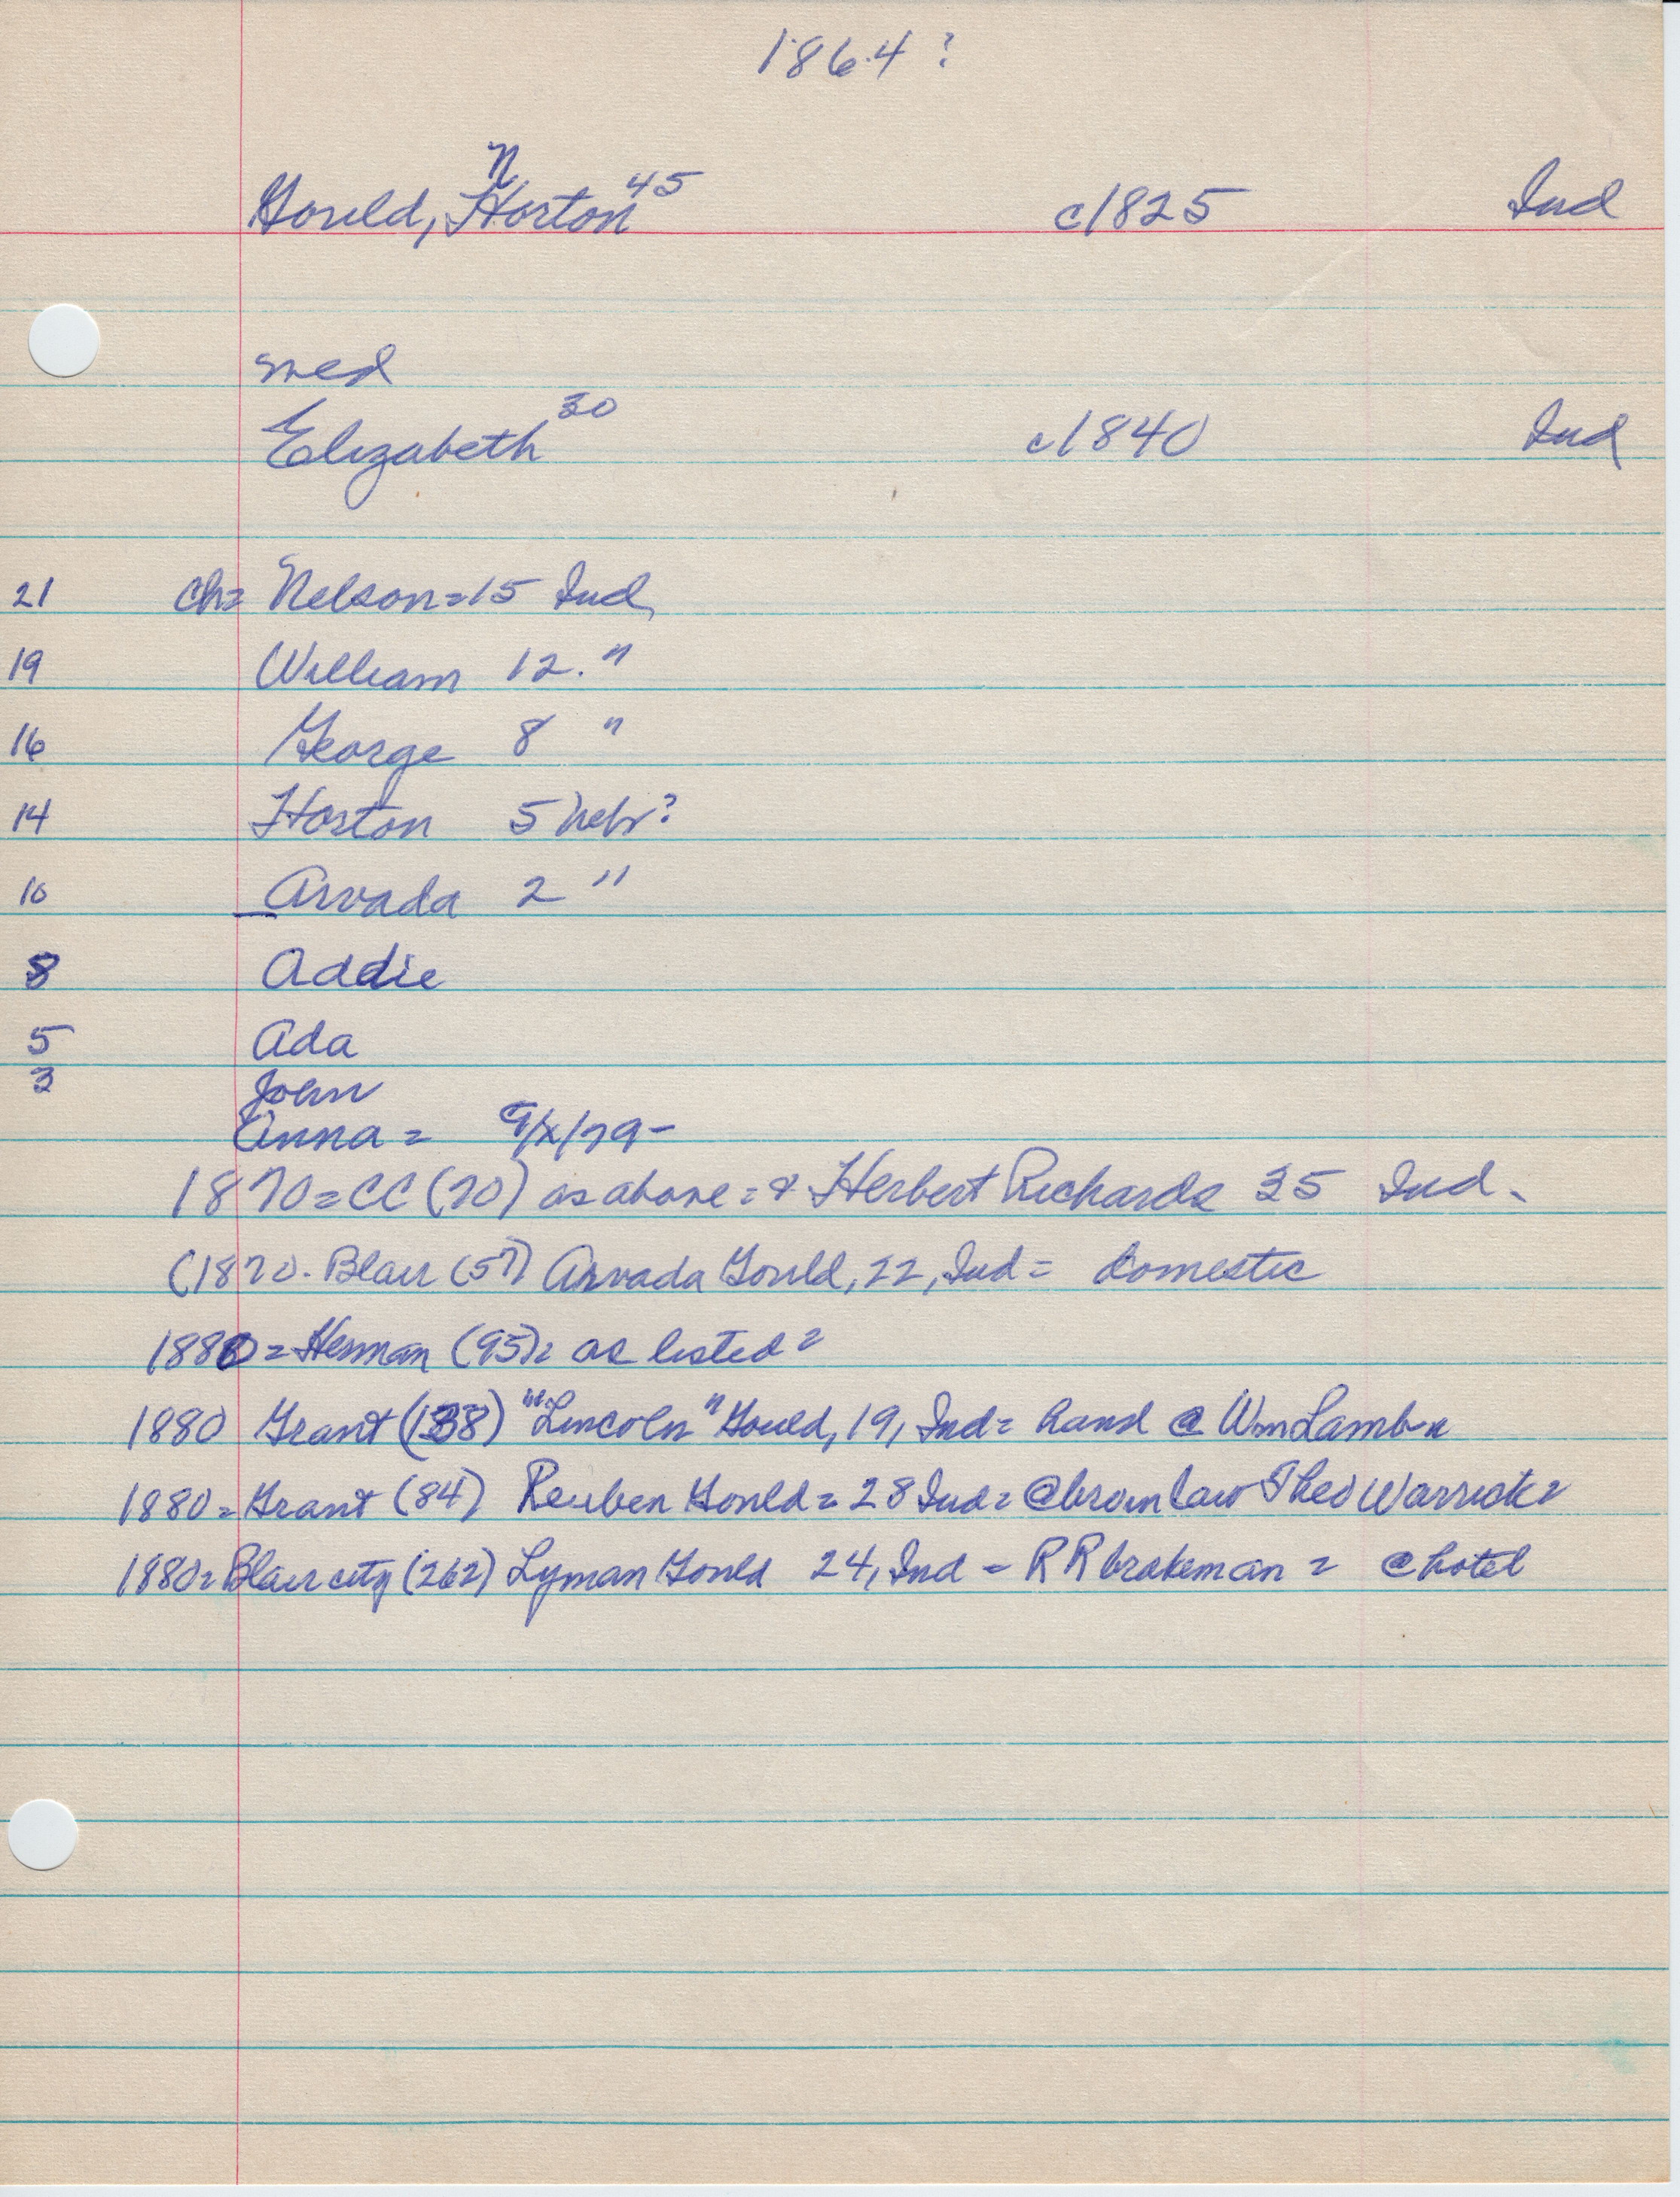 1864?
N
Gould, Horton 45 c1825 Ind
med
Elizabeth 30 c1840 Ind
21 ch= Nelson=15 Ind
19 William 12. "
16 George 8 "
14 Horton 5 Nebr?
10 Arvada 2 "
8 Addie
5 Ada
3 John
Anna = 9/x/79-
1870=CC (70) as above = & Herbert Richards 35 Ind.
(1870. Blair (57) Arvada Gould, 22, Ind = domestic
1880 = Herman (95)= as listed=
1880 Grant (138) "Lincoln" Gould, 19, Ind= hand @ Wm Lamb
1880= Grant (84) Reuben Gould = 28 Ind= @ bro in law Theo Warrick=
1880= Blair city (262) Lyman Gould 24, Ind - RR brakeman = @ hotel